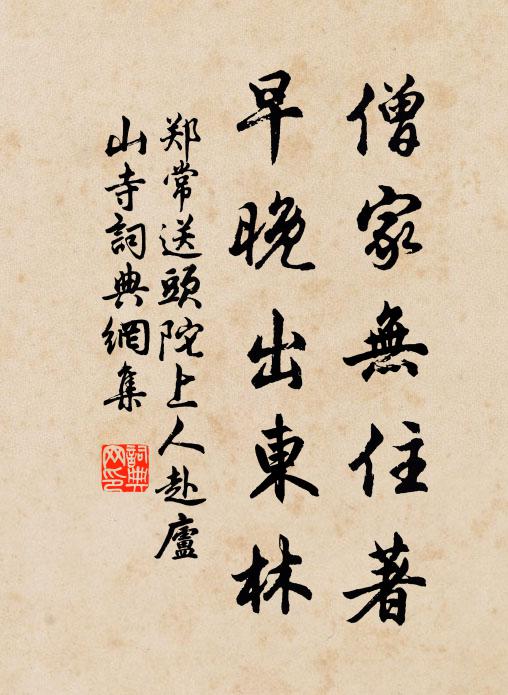 僧家無住著
早晚出東林
郑常送頭陀上人赴廬
山寺詞典網集
詞典网印